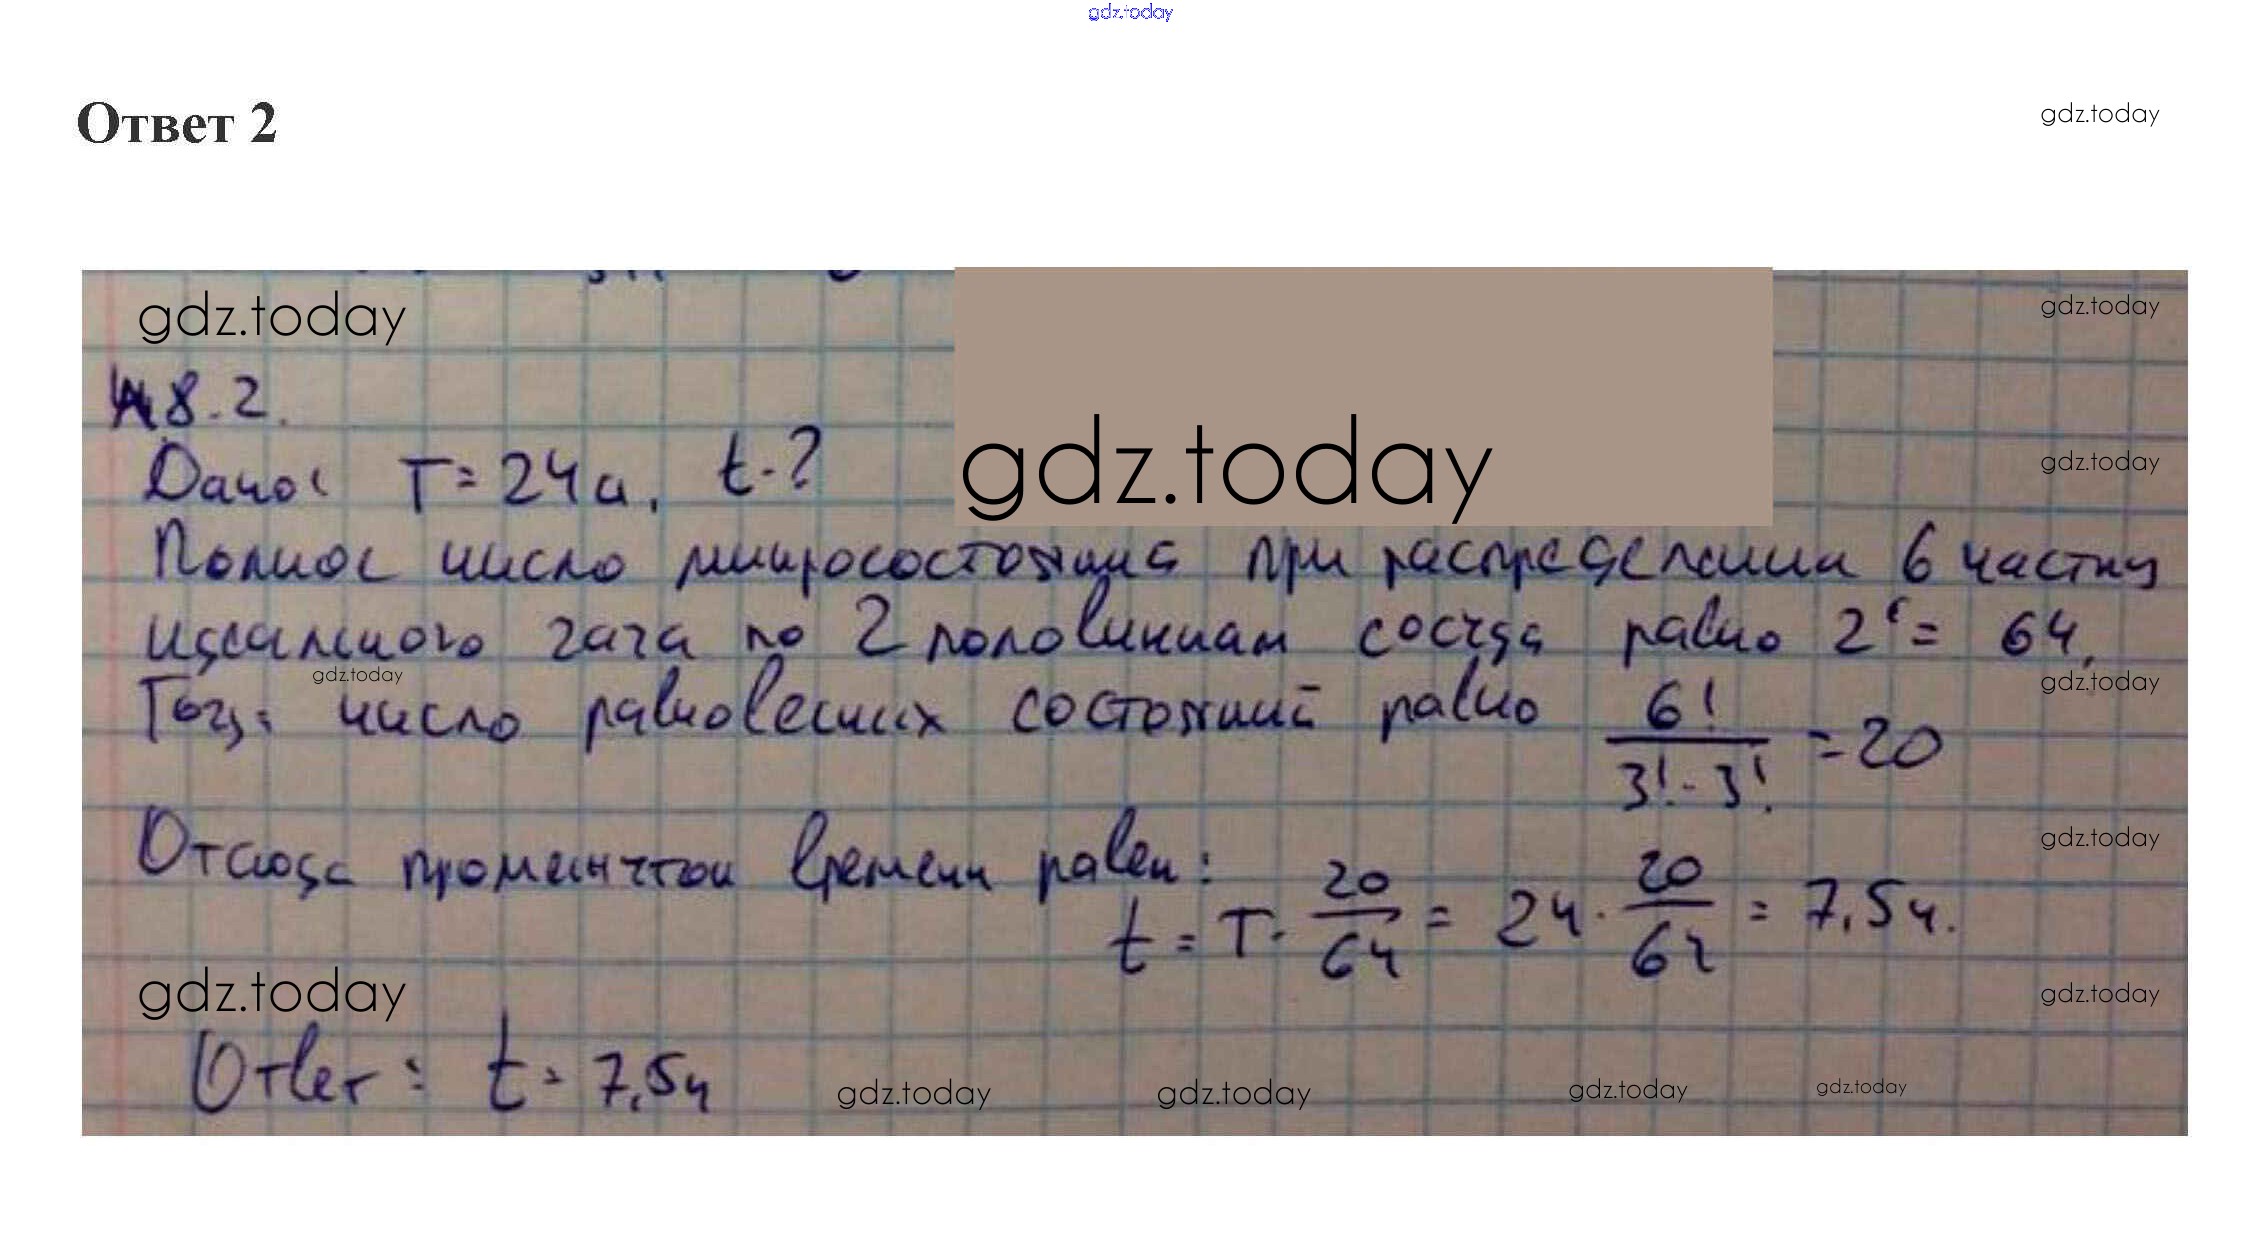 gdz.today
Ответ 2
gdz.today
gdz.today
gdz.today
48.2.
Дано: T = 24ч, t - ?
gdz.today
gdz.today
Полное число микросостояний при распределении 6 частиц
идеального газа по 2 половинкам сосуда равно 2⁶ = 64.
gdz.today
Тогда число равновесных состояний равно 6! / (3! · 3!) = 20
gdz.today
gdz.today
Отсюда промежуток времени равен:
t = T · 20/64 = 24 · 20/64 = 7,5ч.
gdz.today
gdz.today
Ответ: t = 7,5ч
gdz.today
gdz.today
gdz.today
gdz.today